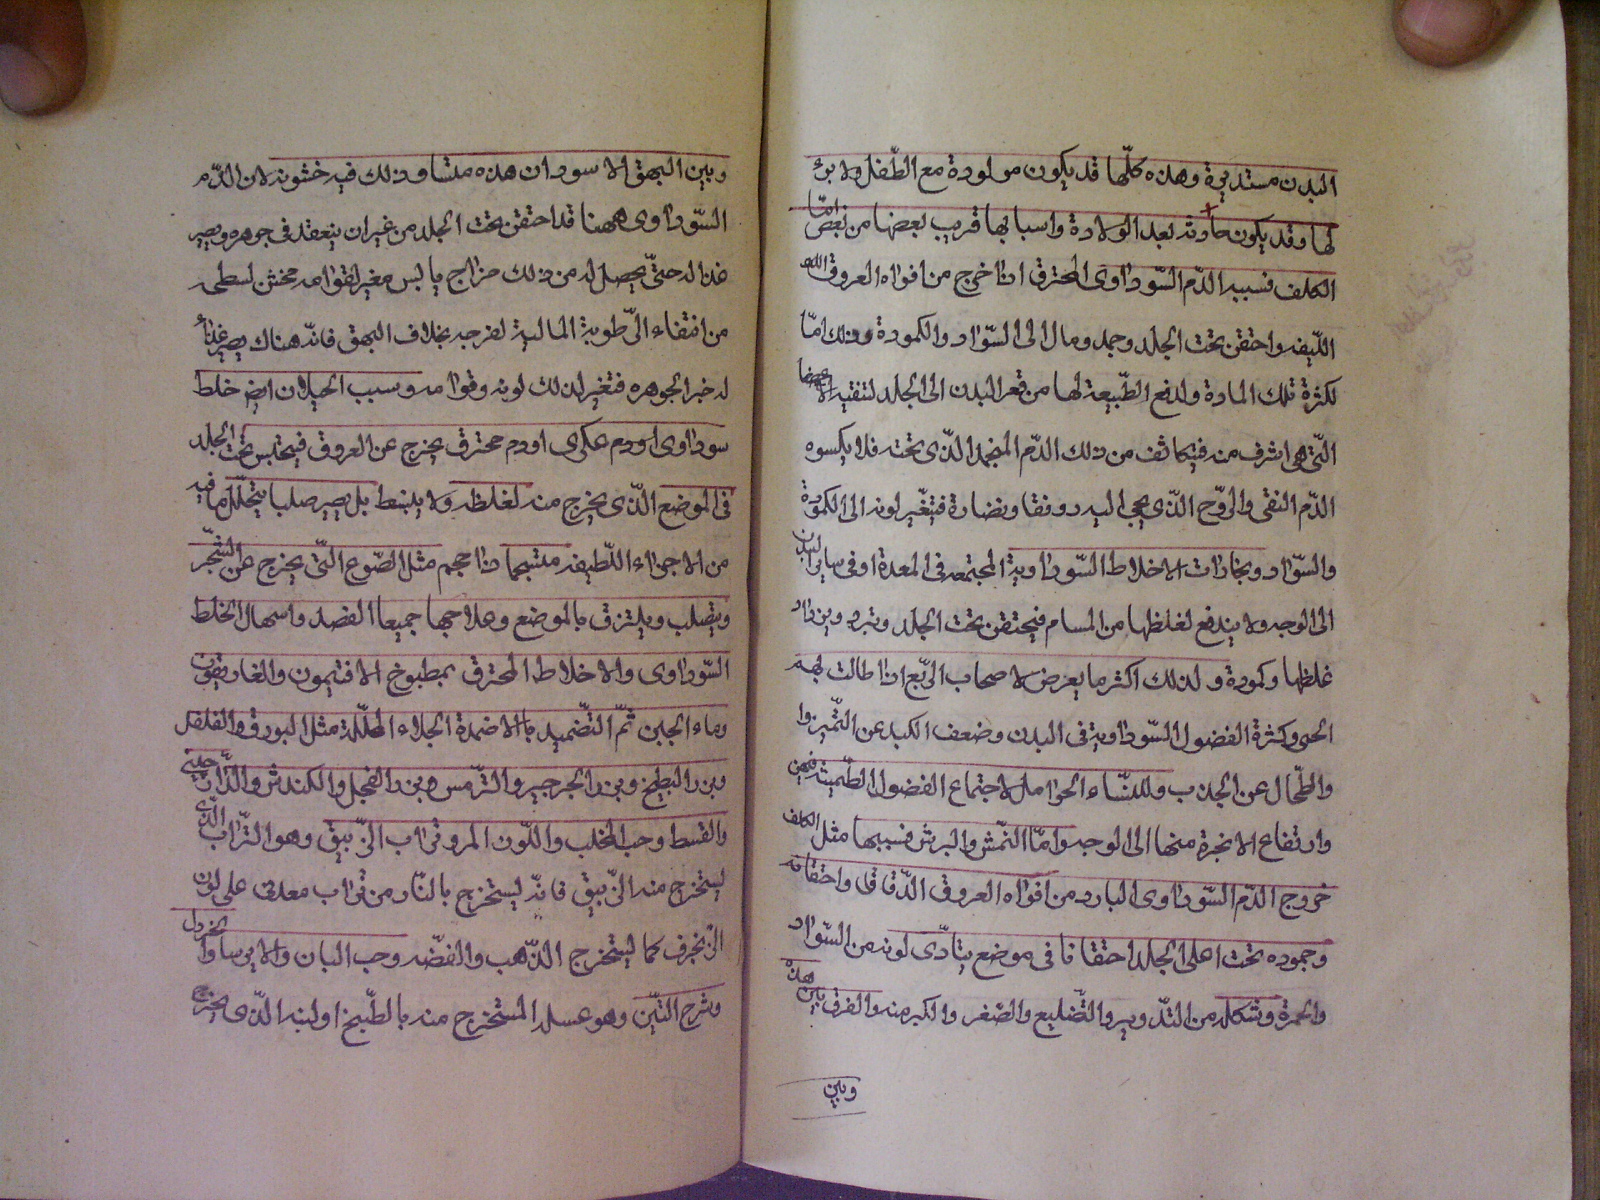 البدن مستديرة وهذه كلّها قد يكون مولودة مع الطّفل ولا برئ
لها وقد يكون حادثة بعد الولادة واسبابها قريب بعضها من بعض امّا
الكلف فسببه الدّم السّوداوى المحترق اذا خرج من افواه العروق
اللّيفه واحتقن تحت الجلد وجمد ومال الى السّواد والكمودة وذلك امّا
لكثرة تلك المادة ولدفع الطّبيعة لها من قعر البدن الى الجلد لتنقيه الاعضا
الّتى هى اشرف منه فيتكاثف من ذلك الدّم المنجمد الّذى تحته فلا يكسوه
الدّم النقى والرّوح الّذى يجى اليه رونقا ونضارة فيتغّير لونه الى الكمودة
والسّواد وبخارات الاخلاط السّوداوية المجتمعه فى المعدة او فى ساير البدن
الى الوجه ولا يندفع لغلظها من المسام فيحتقن تحت الجلد وتبرد ويزداد
غلظها وكمودة ولذلك اكثر ما يعرض لاصحاب الرّبع اذا طالت بهم
الحمى وكثرة الفضول السّوداوية فى البدن وضعف الكبد عن التّميز او
والطّحال عن الجذب وللنّساء الحوامل لاجتماع الفضول الطّمثيه فيهن
وارتفاع الابخرة منها الى الوجه وامّا النّمش والبرش فسببها مثل الكلف
خروج الدّم السّوداوى البارد من افواه العروق الدّقاق واحتقانه
وجموده تحت اعلى الجلد احتقانا فى موضع يتادّى لونه من السّواد
والحمرة وتشكله من التّدوير والتّضليع والصّغر والكبر منه والفرق بين هذه
وبين
وبين البهق الاسود ان هذه ملساء وذلك فيه خشونه لان الدّم
السّوداوى ههنا قد احتقن تحت الجلد من غير ان ينعقد فى جوهره ويصير
غذا له حتّى يحصل له من ذلك مزاج يابس مغير لقوامه مخشن لسطحه
من انتفاء الرّطوبة المالية لفرجه بخلاف البهق فانّه هناك يصير غذاء
له خبر الجوهره فتغير لذلك لونه وقوامه وسبب الخيلان ايض خلط
سوداوى او دم عكرى او دم محترق يخرج عن العروق فيحتبس تحت الجلد
فى الموضع الّذى يخرج منه لغلظه ولا ينبسط بل يصير صلبا يتحلّل ما فيه
من الاجزاء اللّطيفه متشبها ذا حجم مثل الصّوغ الّتى يخرج عن الشّجر
ويتصلب ويلتزق بالموضع وعلاجها جميعا الفصد واسهال الخلط
السّوداوى والاخلاط المحترق بمطبوخ الافتيمون والغاريقون
وماء الجبن ثمّ التّضميد بالاضمدة الجلاء المحلّلة مثل البورق والفلفل
وبزر البطيخ وبزر الجرجير والتّرمس وبزر الفجل والكندش والدّارچينى
والقسط وحب المحلب واللّوز المر وتراب الزّيبق وهو التّراب الّذى
يستخرج منه الزّيبق فانّه يستخرج بالنّار من تراب معدنى على لون
الزّنجرف كما يستخرج الذّهب والفضّه وحب البان والايرسا والخردل
وشرج التّين وهو عسله المستخرج منه بالطّبيخ او لبنه الّذى يخرج